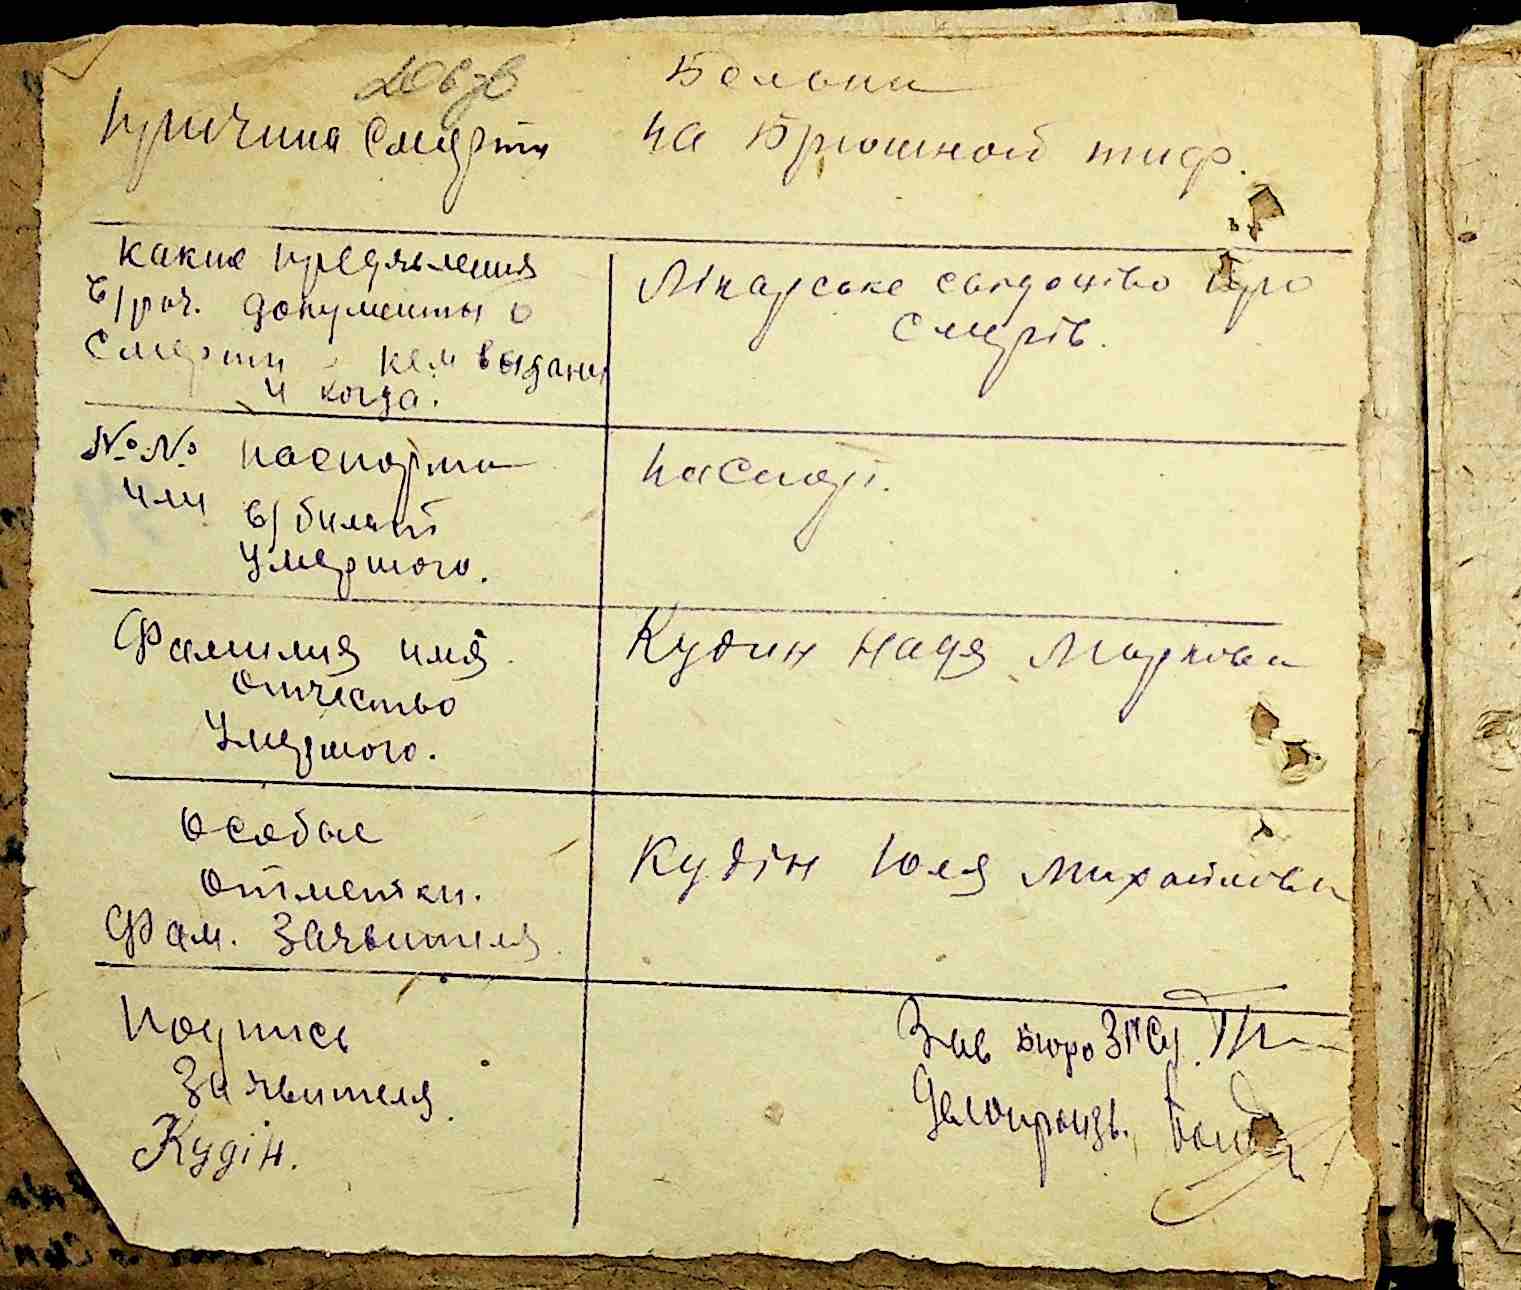 Больна
Причина Смерти на Брюшной тиф.
Какие предявления
в/рач. документы о
Смерти кем выданы
и когда.
Лікарське свідоцтво про
Смерть.
№ № паспорта
или в/билет
умершого.
паспорт.
Фамилия имя
отчество
умершого.
Кудин Надя Маркова
Особые
отметки.
Фам. Заявителя.
Кудін Юля Михайлова
Подпись
Заявителя.
Кудін.
Зав Бюро ЗАГСу
Делопроизв.